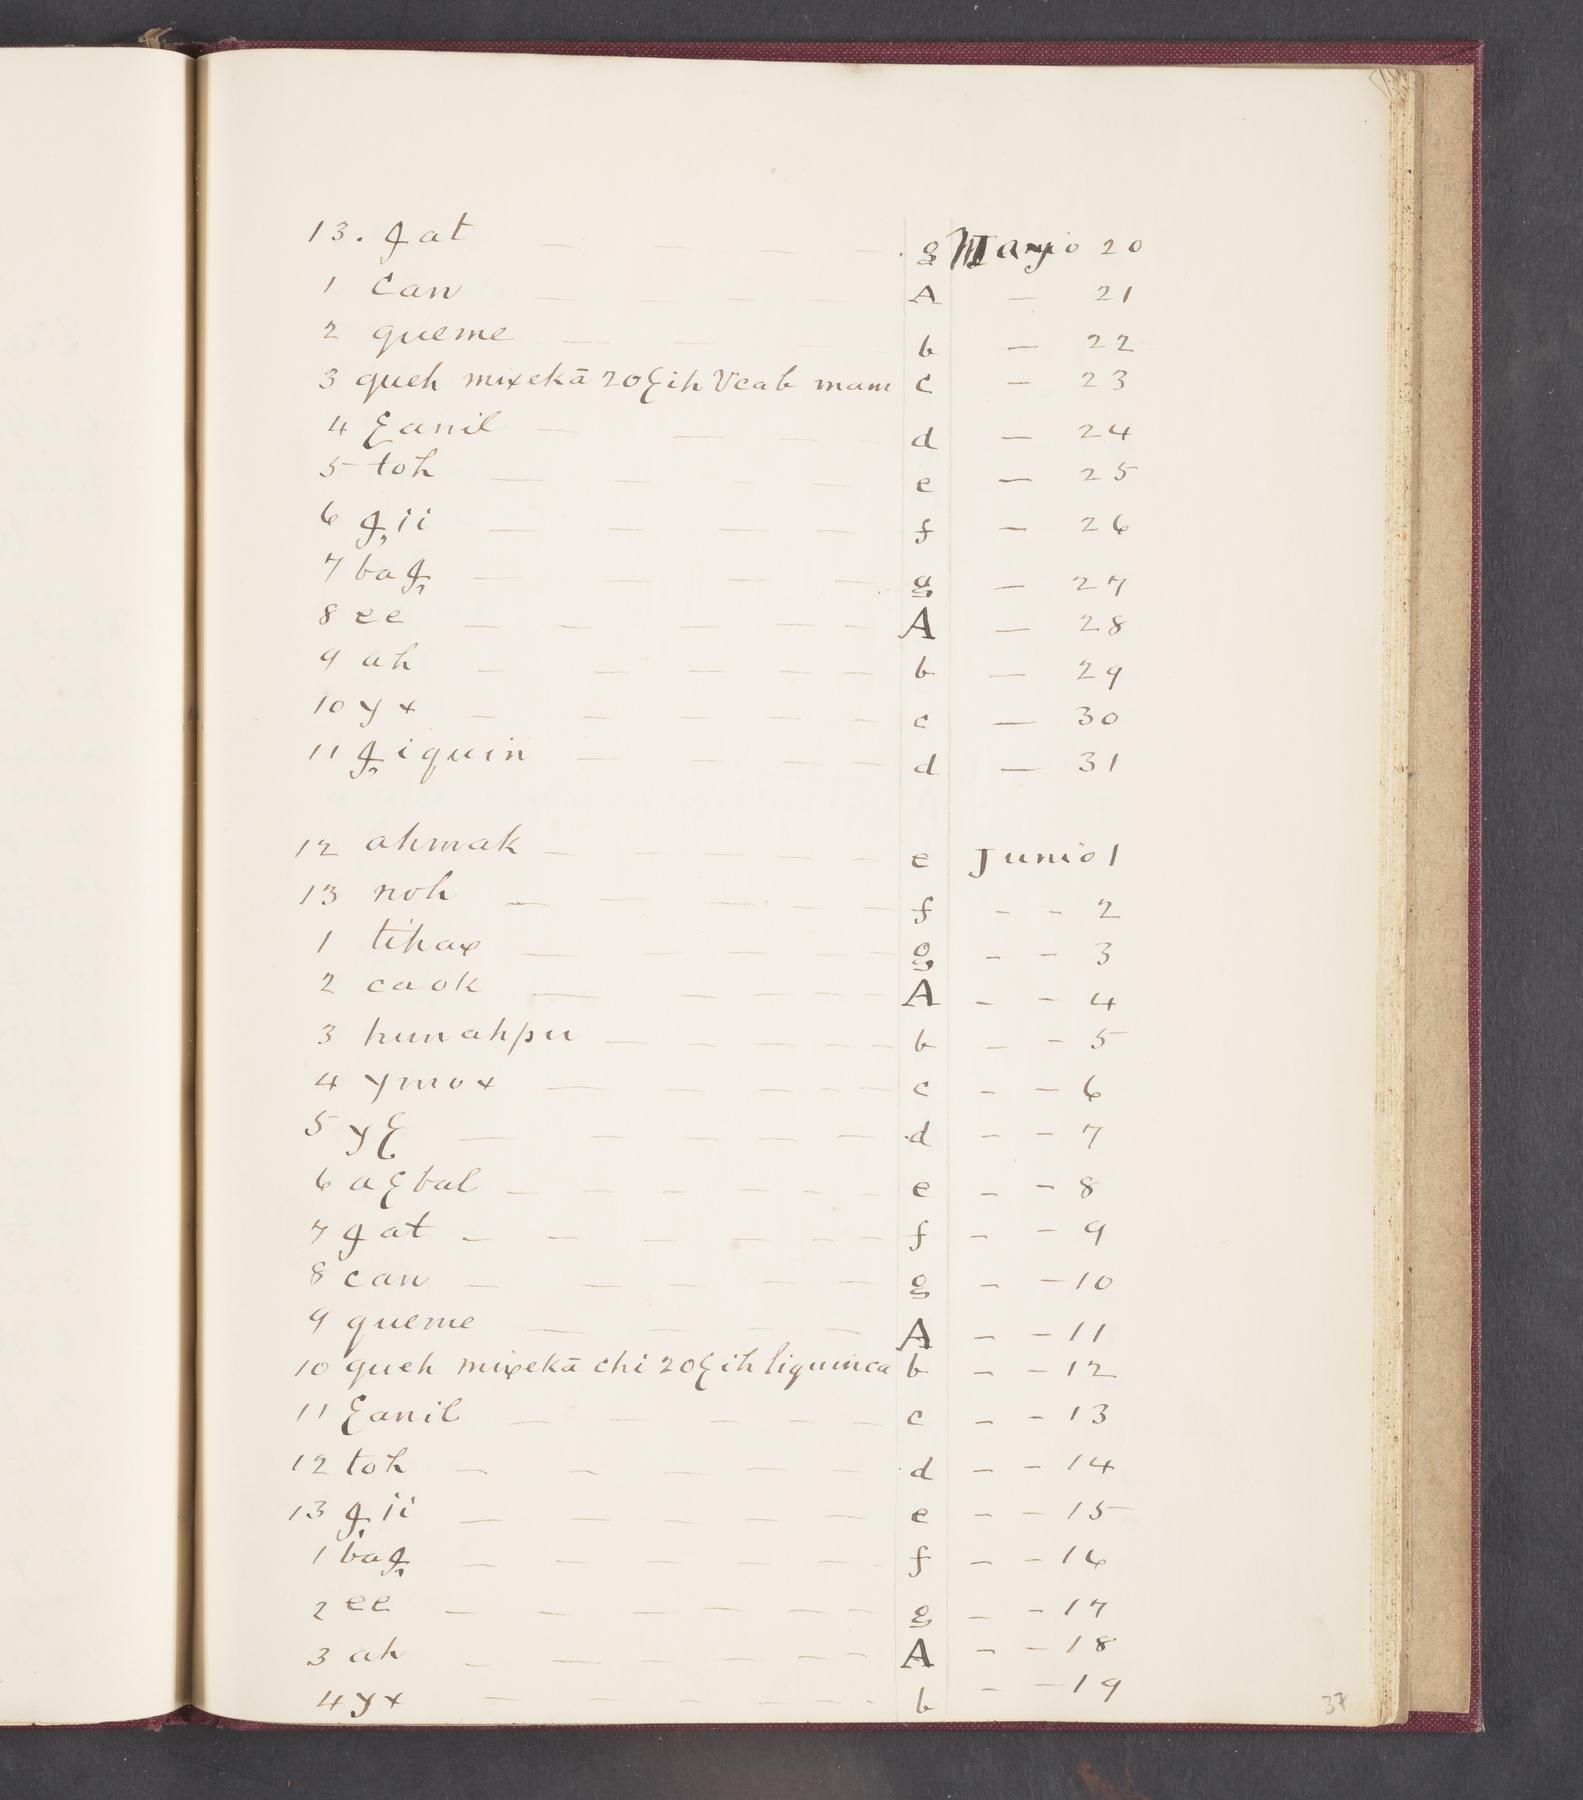 13. ꜭat — — — — g Mayo 20
1 Can — — — — A — 21
2 queme — — — b — 22
3 queh mixekā 20 ꜫih Vcab mam c — 23
4 ꜫanil — — — — d — 24
5 toh — — — — e — 25
6 ꜯii — — — — f — 26
7 baꜯ — — — — g — 27
8 ee — — — — — A — 28
9 ah — — — — — b — 29
10 yx — — — — — c — 30
11 ꜯiquin — — — — d — 31
12 ahmak — — — — — e Junio 1
13 noh — — — — — f - - 2
1 tihax — — — — — g - - 3
2 caok — — — — — A - - 4
3 hunahpu — — — — — b - - 5
4 ymox — — — — — c - - 6
5 yꜫ — — — — — d - - 7
6 aꜫbal — — — — — e - - 8
7 ꜭat — — — — — — f - - 9
8 can — — — — — g - - 10
9 queme — — — — A - - 11
10 queh mixekā chi 20 ꜫih liquinca b - - 12
11 ꜫanil — — — — — c - - 13
12 toh — — — — — d - - 14
13 ꜯii — — — — — e - - 15
1 baꜯ — — — — — f - - 16
2 ee — — — — — — g - - 17
3 ah — — — — — A - - 18
4 yx — — — — — b - - 19
37